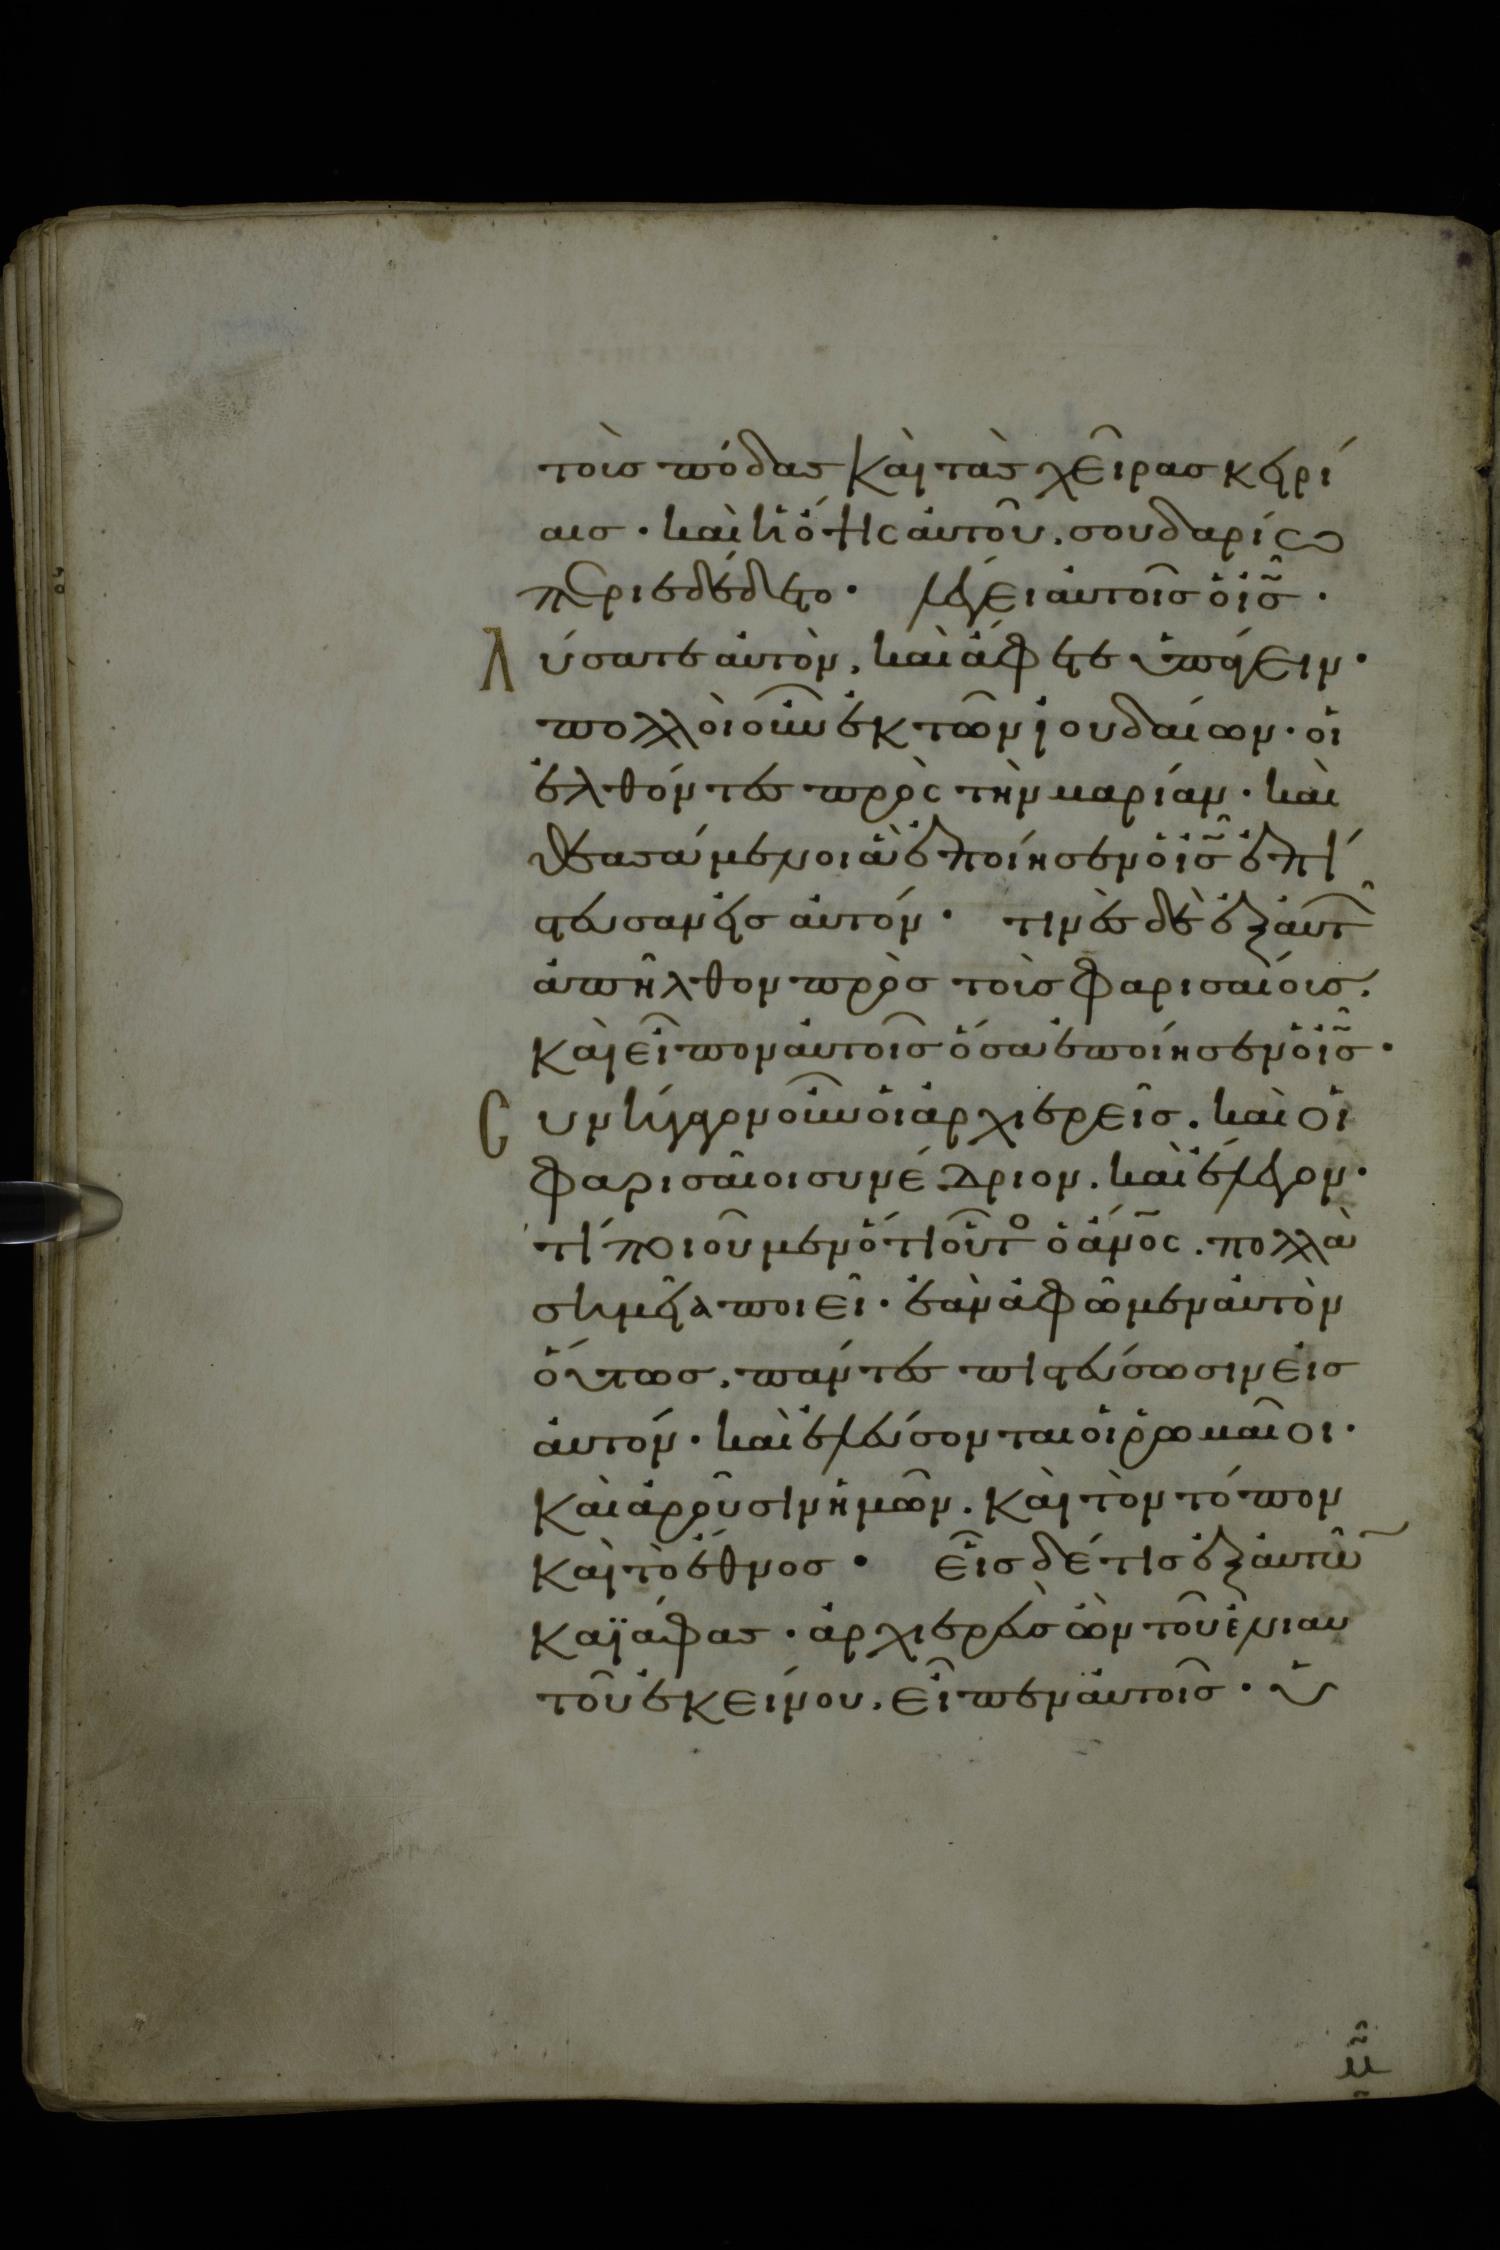 τοὺσ πόδασ καὶ τὰσ χεῖρασ κερί
αισ · καὶ ἡ ὄψισ ἀυτοῦ. σουδαρίω
περιεδέδετο · λέγει ἀυτοῖσ ὁ ἰ̅σ̅ ·
Λύσατε ἀυτὸν, καὶ ἄφετε ὑπάγειν ·
πολλοὶ οὖν ἐκ τῶν ἰουδαίων · οἱ
ἐλθόντεσ πρὸσ τὴν μαρίαν · καὶ
θεασάμενοι ἃ ἐποίησεν ὁ ἰ̅σ̅ ἐπί
στευσαν εἰσ ἀυτόν · τινὲσ δὲ ἐξ ἀυτ
ἀπῆλθον πρὸσ τοὺσ φαρισαίουσ.
καὶ εἶπον ἀυτοῖσ ὅσα ἐποίησεν ὁ ἰ̅σ̅ ·
Συνήγαγον οὖν ὁι ἀρχιερεῖσ. καὶ οἱ
φαρισαῖοι συνέδριον. καὶ ἔλεγον ·
τί ποιοῦμεν ὅτι οὗτο ὁ ἄνοσ. πολλὰ
σημεῖα ποιεῖ · ἐὰν ἀφῶμεν ἀυτὸν
ὅυτωσ. πάντεσ πιστεύσωσιν εἰσ
ἀυτόν · καὶ ἐλεύσονται οἱ ῥωμαῖοι ·
καὶ ἀροῦσιν ἡμῶν. καὶ τὸν τόπον
καὶ τὸ ἔθνοσ · εἷσ δέ τισ ἐξ ἀυτῶ
καϊάφασ · ἀρχιερεὺσ ὢν τοῦ ἐνιαυ
τοῦ ἐκείνου. εἶπεν ἀυτοῖσ · ὑ